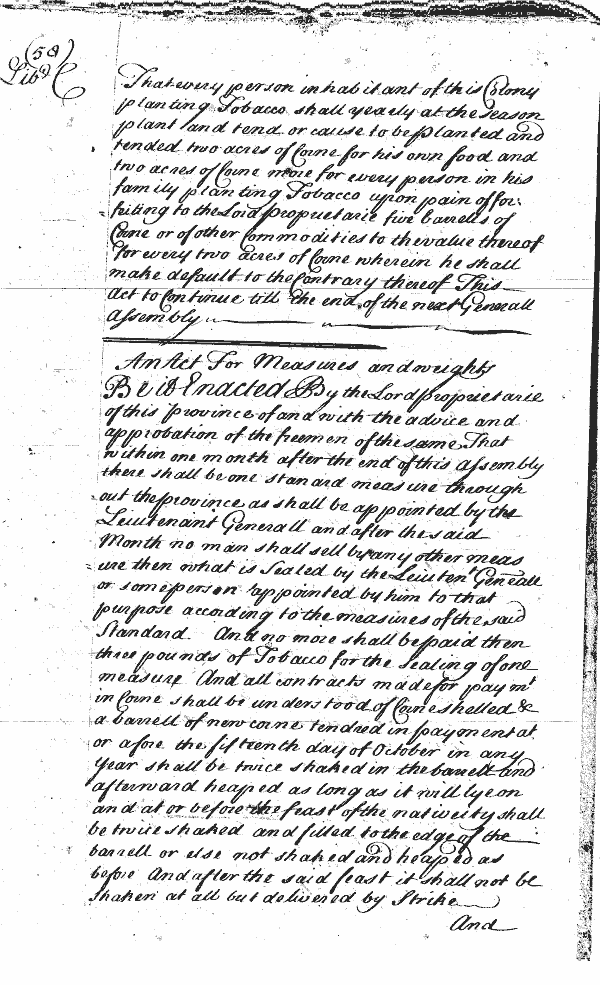 (58)
Lib C
That every person inhabitant of this Colony
planting Tobacco shall yearly at the season
plant and tend or cause to be planted and
tended two acres of Corne for his own food and
two acres of Corne more for every person in his
family planting Tobacco upon pain of for:
feiting to the Lord proprietarie five barrells of
Corne or of other Commodities to the value thereof
for every two acres of Corne wherein he shall
make default to the Contrary thereof This
Act to Continue till the end of the next Generall
Assembly
An Act For Measures and weights
Be it Enacted By the Lord proprietarie
of this province of and with the advice and
approbation of the freemen of the same That
within one month after the end of this Assembly
there shall be one stanard measure through
out the province as shall be appointed by the
Leiutenant Generall and after the said
Month no man shall sell by any other meas
ure then what is Sealed by the Leiuten.t Generall
or some person appointed by him to that
purpose according to the measures of the said
Standard And no more shall be paid then
three pounds of Tobacco for the Sealing of one
measure And all contracts made for paym.t
in Corne shall be understood of Corne shelled &
a barrell of new corne tendred in payment at
or afore the fifteenth day of October in any
year shall be twice shaked in the barrell and
afterward heaped as long as it will lye on
and at or before the feast of the nativeity shall
be twice shaked and filled to the edge of the
barrell or else not shaked and heaped as
before And after the said feast it shall not be
shaken at all but delivered by Strike
And